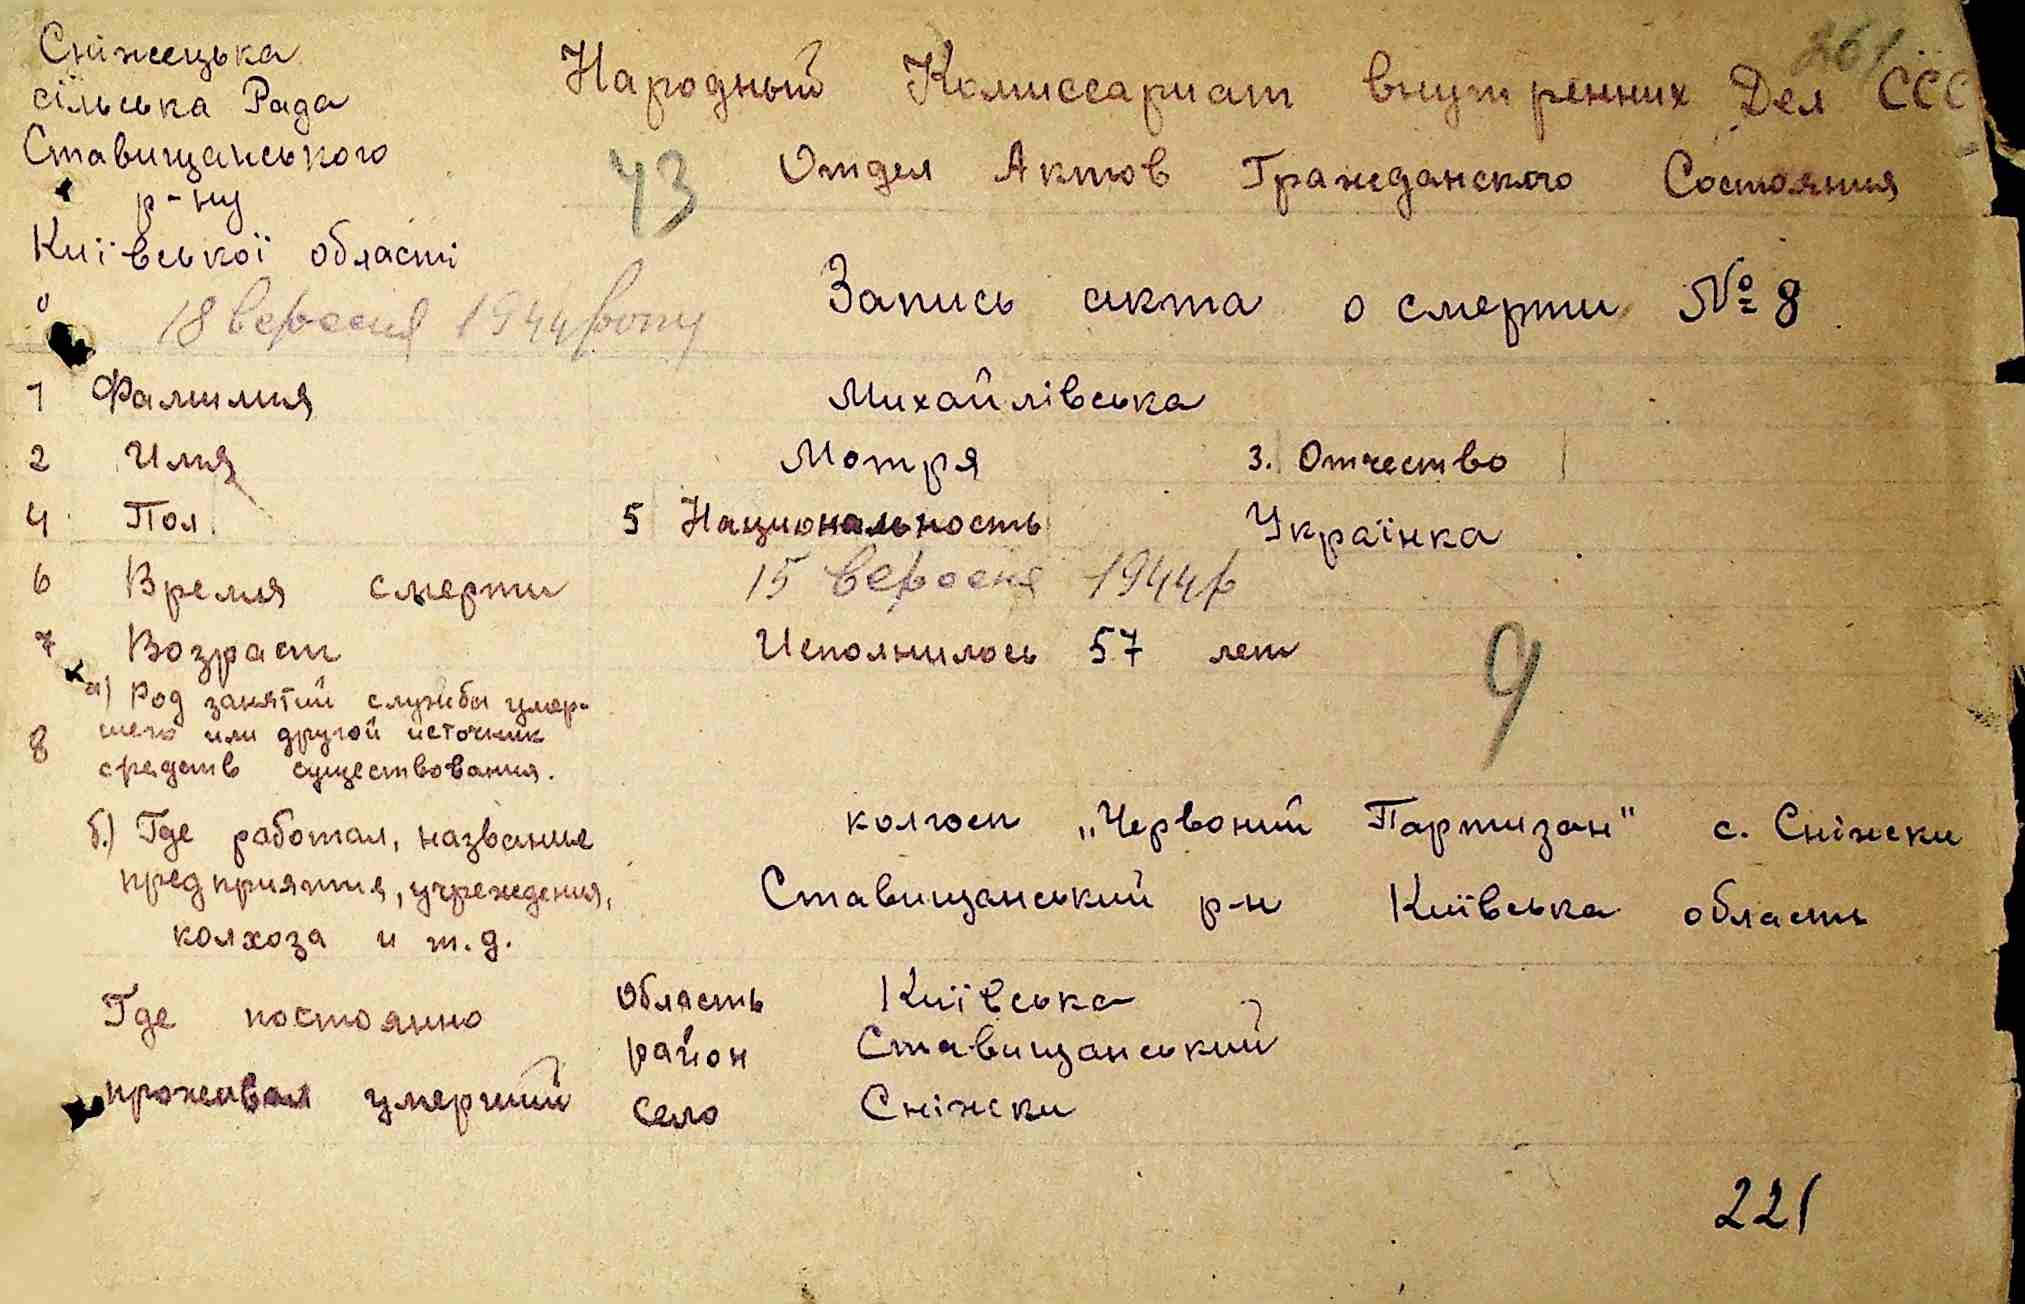 261
Сніжецька
сільська Рада
Ставищанського
р-ну
Київської області
18 вересня 1944 року
Народный Комиссариат внутренних Дел ССС
43 Отдел Актов Гражданского Состояния
Запись акта о смерти № 8
1 Фамилия Михайлівська
2 Имя Мотря 3. Отчество
4 Пол 5 Национальность Українка
6 Время смерти 15 вересня 1944 р
7 Возраст Исполнилось 57 лет
9
8 а) Род занятий службы умер-
шего или другой источник
средств существования.
б.) Где работал, название
предприятия, учреждения,
колхоза и т.д.
колгосп „Червоний Партизан" с. Сніжки
Ставищанський р-н Київська область
Где постоянно
проживал умерший
область Київська
район Ставищанський
село Сніжки
221